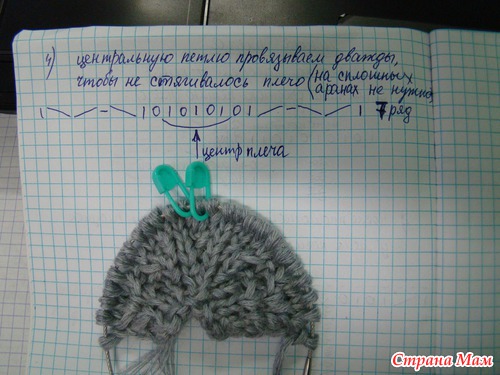 4) центральную петлю провязываем дважды,
чтобы не стягивалось плечо (на сплошных
аранах не нужно)
1 \ \ - \ 1 0 1 0 1 0 1 0 1 / - / / 1 7 ряд
центр плеча
Страна Мам